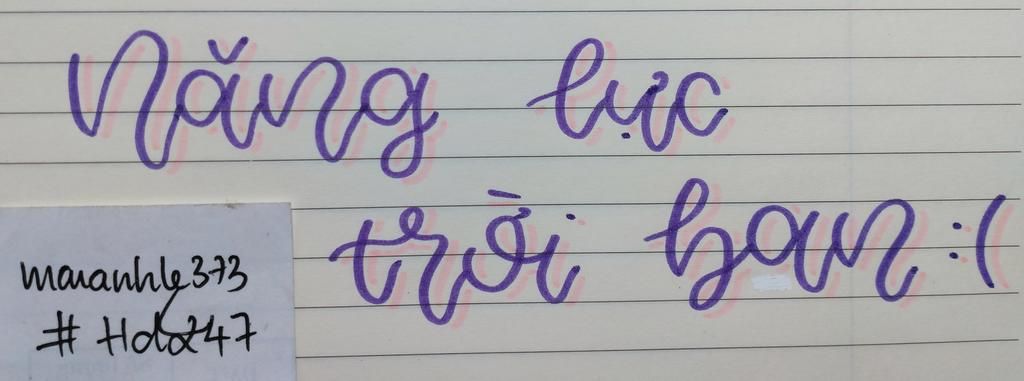 Năng lực
trời ban :(
maianhly373
# Hda247